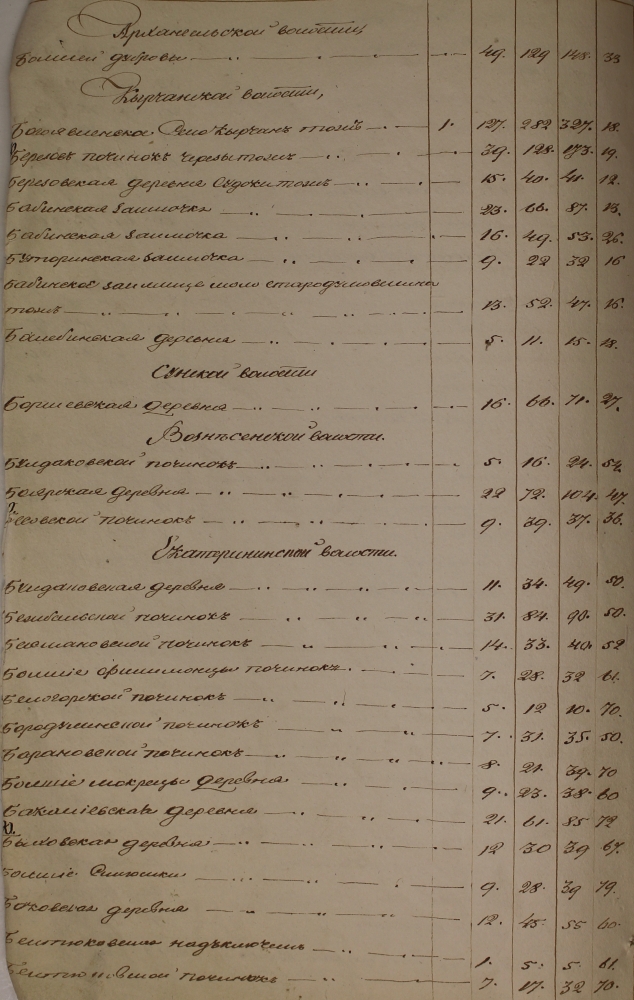 Архангельской волости
Большей дубровы 49. 129 148. 33
Кырчанской волости,
Богоявленское Село Кырчанъ тожъ 1. 127. 282 327. 18.
Березовъ починокъ Черезы тожъ 39. 128. 173. 19.
Березовская деревня Судожи тожъ 15. 40. 41. 12.
Бабинская заимочка 23. 66. 87. 13.
Бабинская заимочка 16. 49. 53. 26.
Буторинская заимочка 9. 22 32 16
Бабинское займище мало стародумовщина
тожъ 13. 52. 47. 16.
деревня 5. 11. 15. 18.
Сунской волости
Боршевская деревня 16. 66. 71. 27.
Вознѣсенской волости.
Булдаковской починокъ 5. 16. 24. 54.
Боярская деревня 22 72. 104. 47.
починокъ 9. 39. 37. 36.
Екатерининской волости.
деревня 11. 34. 49. 50.
починокъ 31. 84. 90. 50.
починокъ 14. 33. 40. 52
Большіе Филимонцы починокъ. 7. 28. 32 61.
Белогорской починокъ 5. 12 10. 70.
Бородулинской починокъ 7. 31. 35. 50.
Барановской починокъ 8. 21. 39. 70
Большіе мокрецы деревня 9. 23. 38. 60
деревня 21. 61. 85 72
Быковская деревня 12 30 39 67.
Большіе 9. 28. 39 79.
деревня 12. 45. 55 60.
надъ ключемъ 1. 5. 5. 61.
починокъ 7. 17. 32 70.